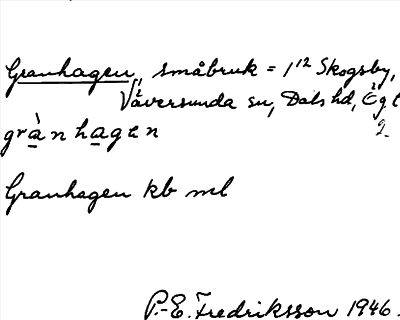 Granhagen, småbruk = 1¹² Skogsby,
Väversunda sn, Dals hd, Ögl
grànhagen 2
Granhagen kb ml
P.-E. Fredriksson 1946.